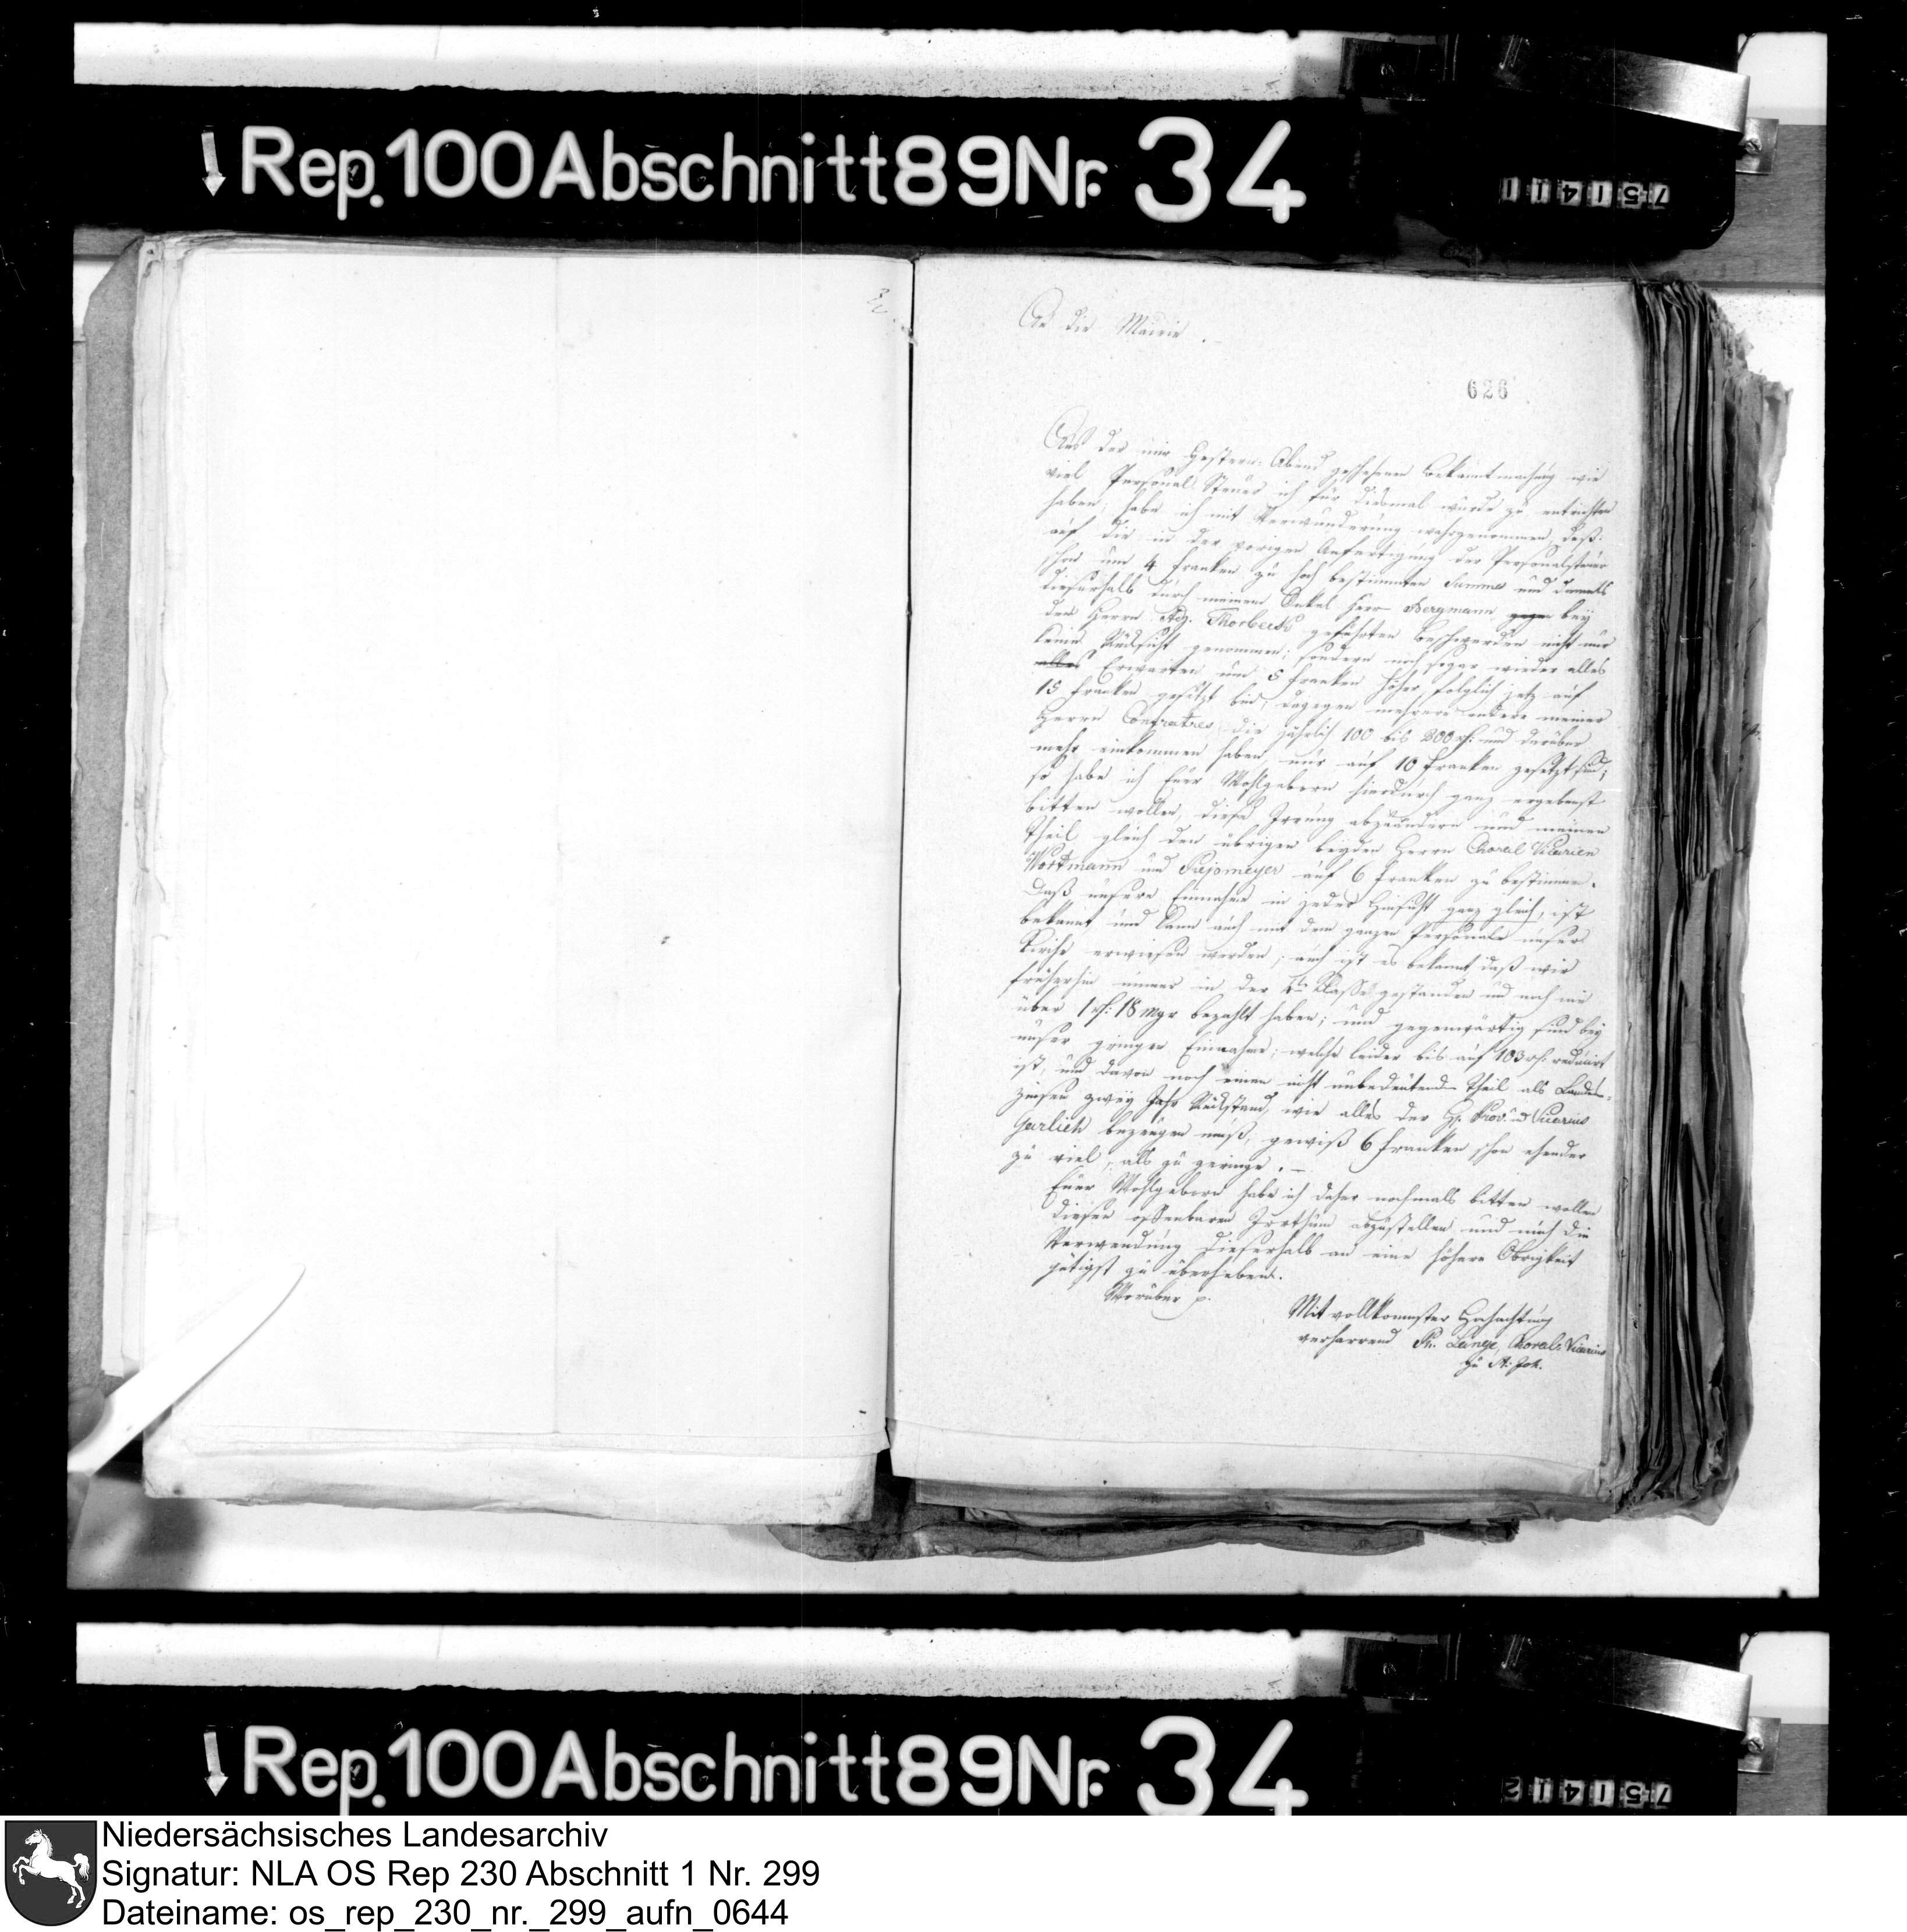 Rep. 100 Abschnitt 89 Nr. 34
75141 1
An die Mairie.
626
Aus der mir Gestern Abend geschehenen Bekanntmachung wie
viel Personal Steuer ich für diesmal würde zu entrichten
haben, habe ich mit Verwunderung wahrgenommen, daß
auf die in der vorigen Anfertigung der Personalsteuer
schon um 4 Franken zu hoch bestimmten Summe und damals
dieserhalb durch meinen Onkel Herr Bergmann gegen bey
dem Herrn Adj. Thorbecke geführten Beschwerden nicht nur
keine Rücksicht genommen; sondern noch sogar wieder alles
alles Erwarten um 5 Franken höher, folglich jetz auf
15 Franken gesetzt bin, dagegen mehrere andere meiner
Herrn Confratres, die jährlich 100 bis 200 rh: und darüber
mehr einkommen haben nur auf 10 Franken gesetzt sind;
so habe ich Euer Wohlgebern hierdurch ganz ergebenst
bitten wollen, diese Irrung abzuändern und meinen
Theil gleich den übrigen beyden Herrn Choral Vicarien
Wortmann und auf 6 Franken zu bestimmen.
Daß unsere Einnahme in jeder Hinsicht ganz gleich, ist
bekannt und kann auch mit dem ganzen Personale unser
Kirche erwiesen werden; auch ist es bekannt daß wir
früherhin immer in der Klasse gestanden und noch nie
über 1 rh: 18 mgr bezahlt haben; und gegenwärtig sind bey
unser gringen Einnahme; welche leider bis auf 103 rh: reducirt
ist, und davon noch einen nicht unbedeutend Theil als Landes-
zinsen zwey Jahr Rückstand, wie alles der H. Prov. Vicarius
Garlich bezeugen muß, gewiß 6 Franken schon ehender
zu viel, als zu geringe. –
Euer Wohlgebern habe ich daher nochmals bitten wollen
diesen offenbaren Irrthum abzustellen und mich die
Verwendung dieserhalb an eine höhere Obrigkeit
gütigst zu überheben.
Worüber p.
Mit vollkommster Hochachtung
verharrend Ph. Choral Vicarius
zu St. Joh.
Rep. 100 Abschnitt 89 Nr. 34
75141 2
Niedersächsisches Landesarchiv
Signatur: NLA OS Rep 230 Abschnitt 1 Nr. 299
Dateiname: os_rep_230_nr._299_aufn_0644